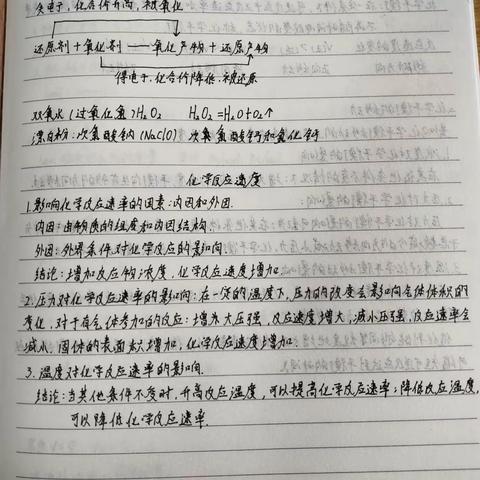 失电子，化合价升高，被氧化
还原剂＋氧化剂 —— 氧化产物＋还原产物
得电子，化合价降低，被还原
双氧水（过氧化氢）H₂O₂　H₂O₂=H₂O+O₂↑
漂白粉：次氯酸钠(NaClO) 次氯酸钙和氯化钙
化学反应速度
1.影响化学反应速率的因素：内因和外因.
内因：由物质的组成和内因结构.
外因：外界条件对化学反应的影响.
结论：增加反应物浓度，化学反应速度增加.
2.压力对化学反应速率的影响：在一定的温度下，压力的改变会影响气体体积的
变化，对于有气体参加的反应：增大压强，反应速度增大，减小压强，反应速率会
减小，固体的表面积增加，化学反应速度增加.
3.温度对化学反应速率的影响.
结论：当其他条件不变时，升高反应温度，可以提高化学反应速率；降低反应温度，
可以降低化学反应速率.